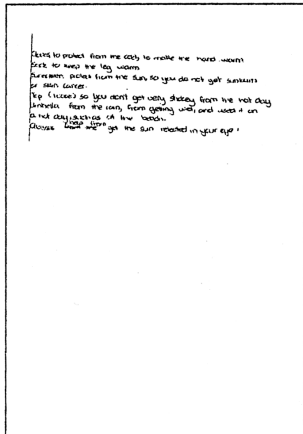 to protect from the cold, to make the hand warm
to keep the leg warm
protect from the sun, so you do not get sunburn
or skin cancer.
Top (loose) so you don't get very sticky from the hot day
Umbrella from the rain, from getting wet, and used it on
a hot day, such as at the beach.
Glasses help from get the sun reflected in your eye